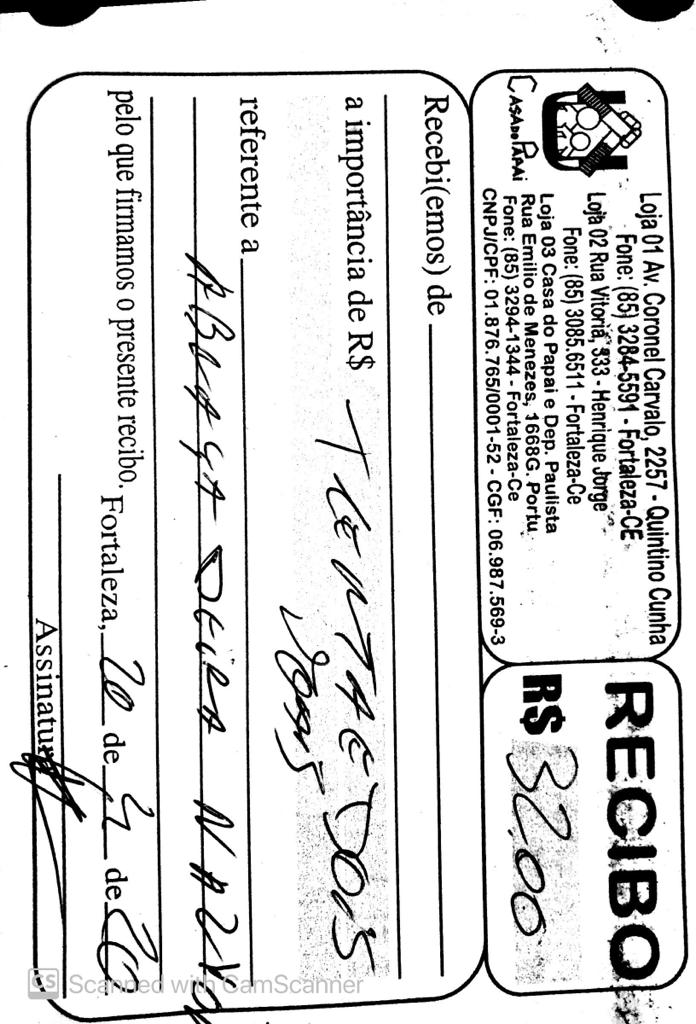 CASA DO PAPAI
Loja 01 Av. Coronel Carvalo, 2257 - Quintino Cunha
Fone: (85) 3284-5591 - Fortaleza-CE
Loja 02 Rua Vitoria, 333 - Henrique Jorge
Fone: (85) 3085.6511 - Fortaleza-Ce
Loja 03 Casa do Papai e Dep. Paulista
Rua Emilio de Menezes, 1668G. Portu
Fone: (85) 3294-1344 - Fortaleza-Ce
CNPJ/CPF: 01.876.765/0001-52 - CGF: 06.987.569-3
RECIBO
R$ 32,00
Recebi(emos) de
a importância de R$ TRENTA E DOIS
reais
referente a
ABRAÇADEIRA
pelo que firmamos o presente recibo.
Fortaleza, 20 de de 20
Assinatura
CS Scanned with CamScanner